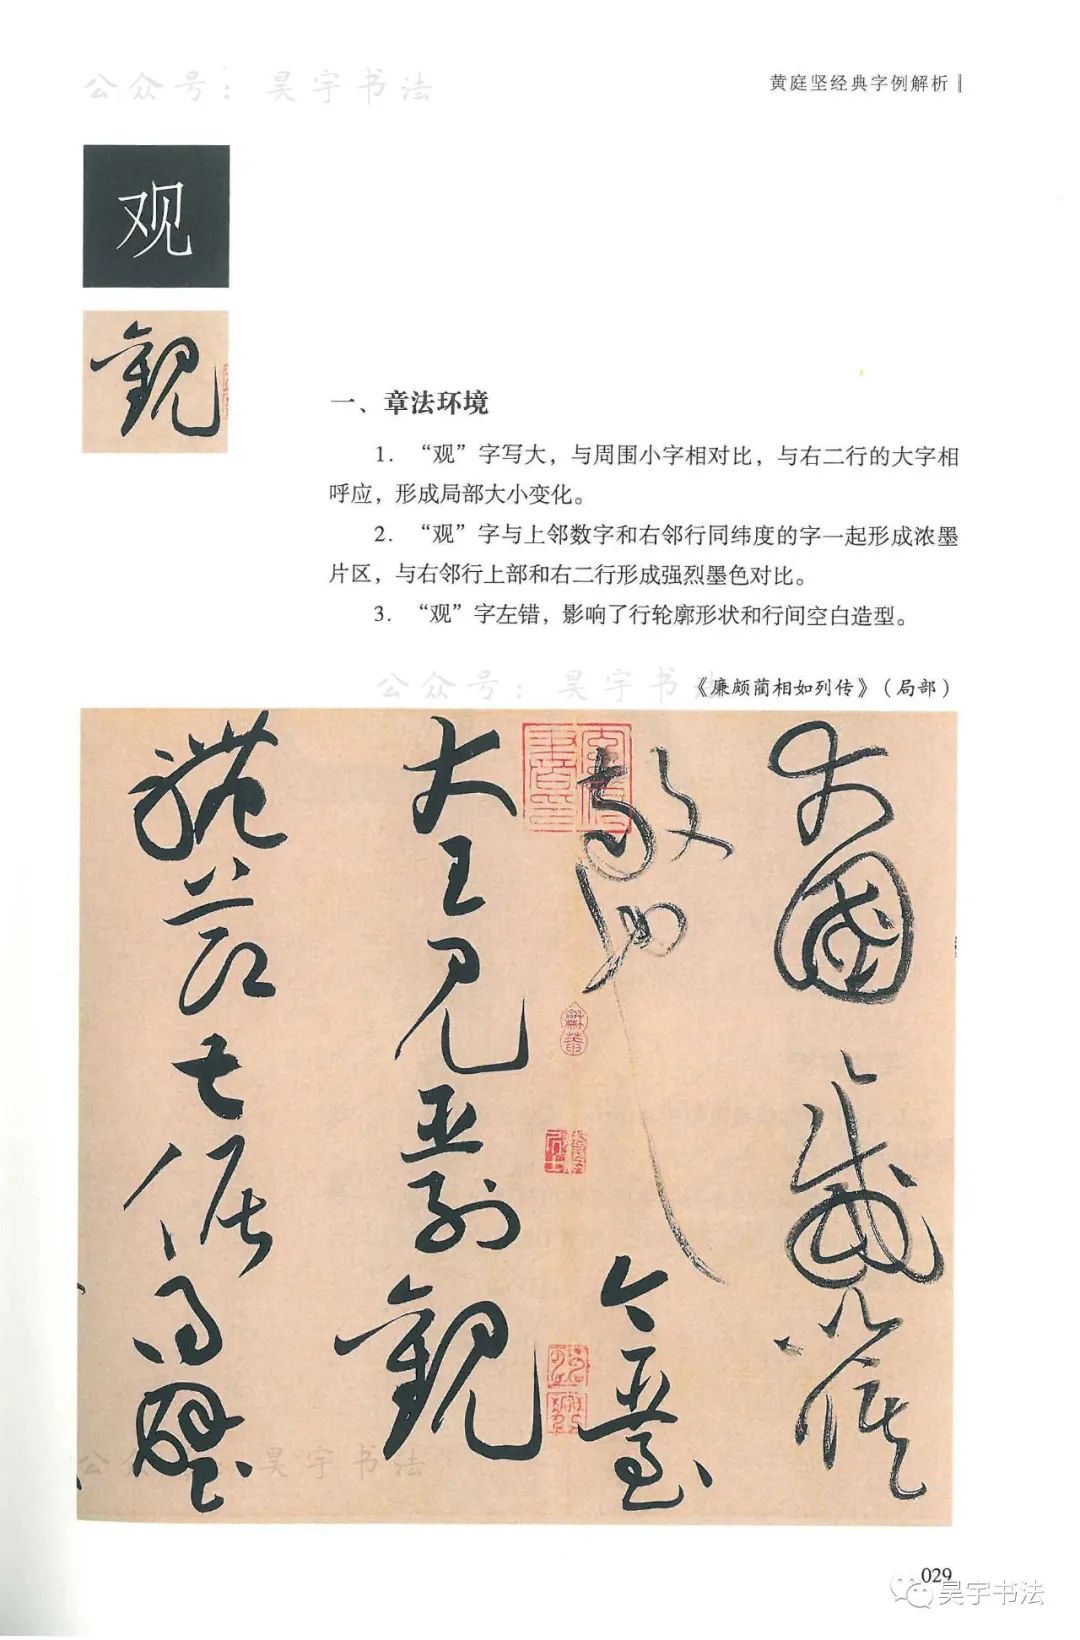 公众号：昊宇书法
黄庭坚经典字例解析
观
觀
一、章法环境
1．“观”字写大，与周围小字相对比，与右二行的大字相
呼应，形成局部大小变化。
2．“观”字与上邻数字和右邻行同纬度的字一起形成浓墨
片区，与右邻行上部和右二行形成强烈墨色对比。
3．“观”字左错，影响了行轮廓形状和行间空白造型。
公众号：昊宇书法
《廉颇蔺相如列传》（局部）
大國之威以脩
敬也今臣至
大王見臣列觀
禮節甚倨得璧
公众号：昊宇书法
029
昊宇书法